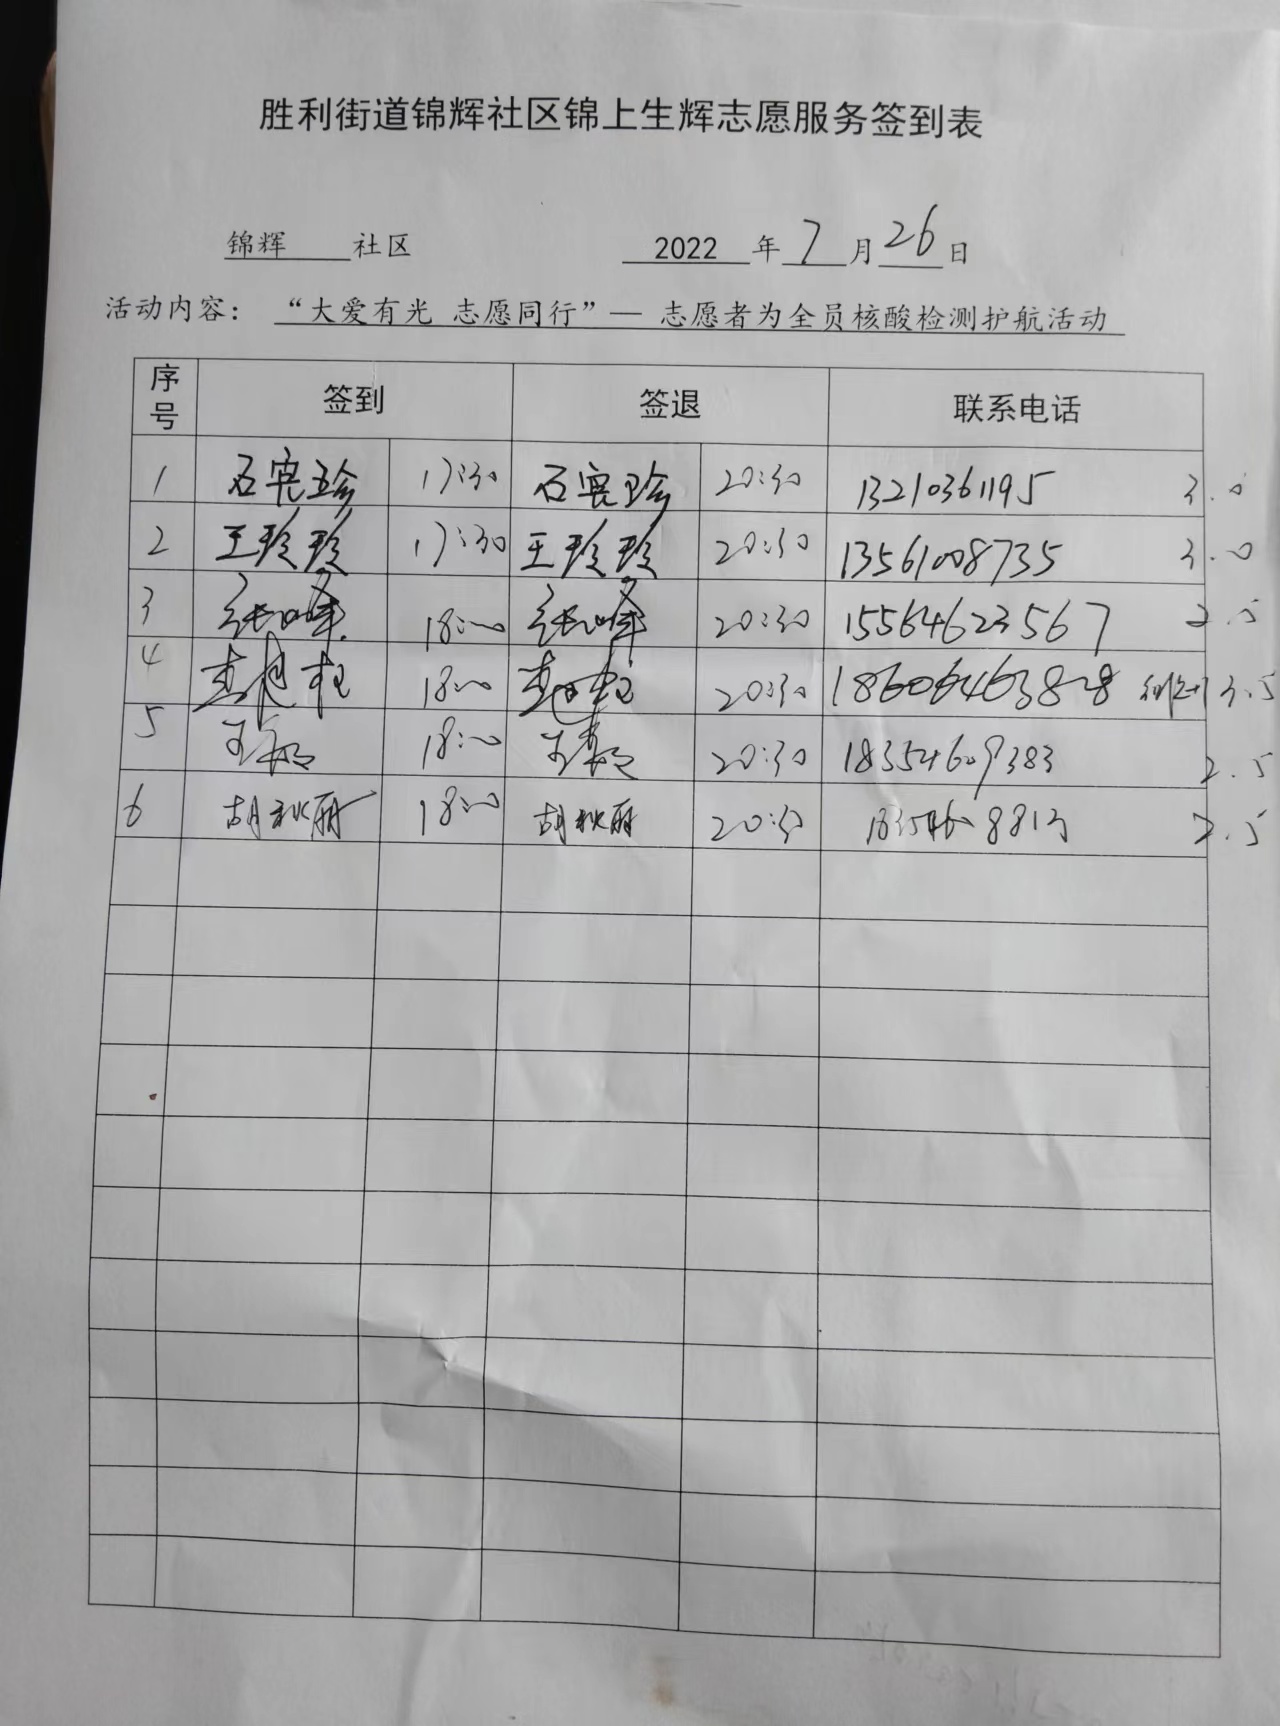 胜利街道锦辉社区锦上生辉志愿服务签到表
锦辉 社区 2022 年 7 月 26 日
活动内容： “大爱有光 志愿同行”— 志愿者为全员核酸检测护航活动
序号 签到 签退 联系电话
1 石 珍 17:30 石 珍 20:30 13210361195 3.0
2 王玲玲 17:30 王玲玲 20:30 13561008735 3.0
3 张 峰 18:00 张 峰 20:30 15564623567 2.5
4 18:00 20:30 18606463828 3.5
5 王 18:00 王 20:30 18354609383 2.5
6 胡秋丽 18:00 胡秋丽 20:30 2.5